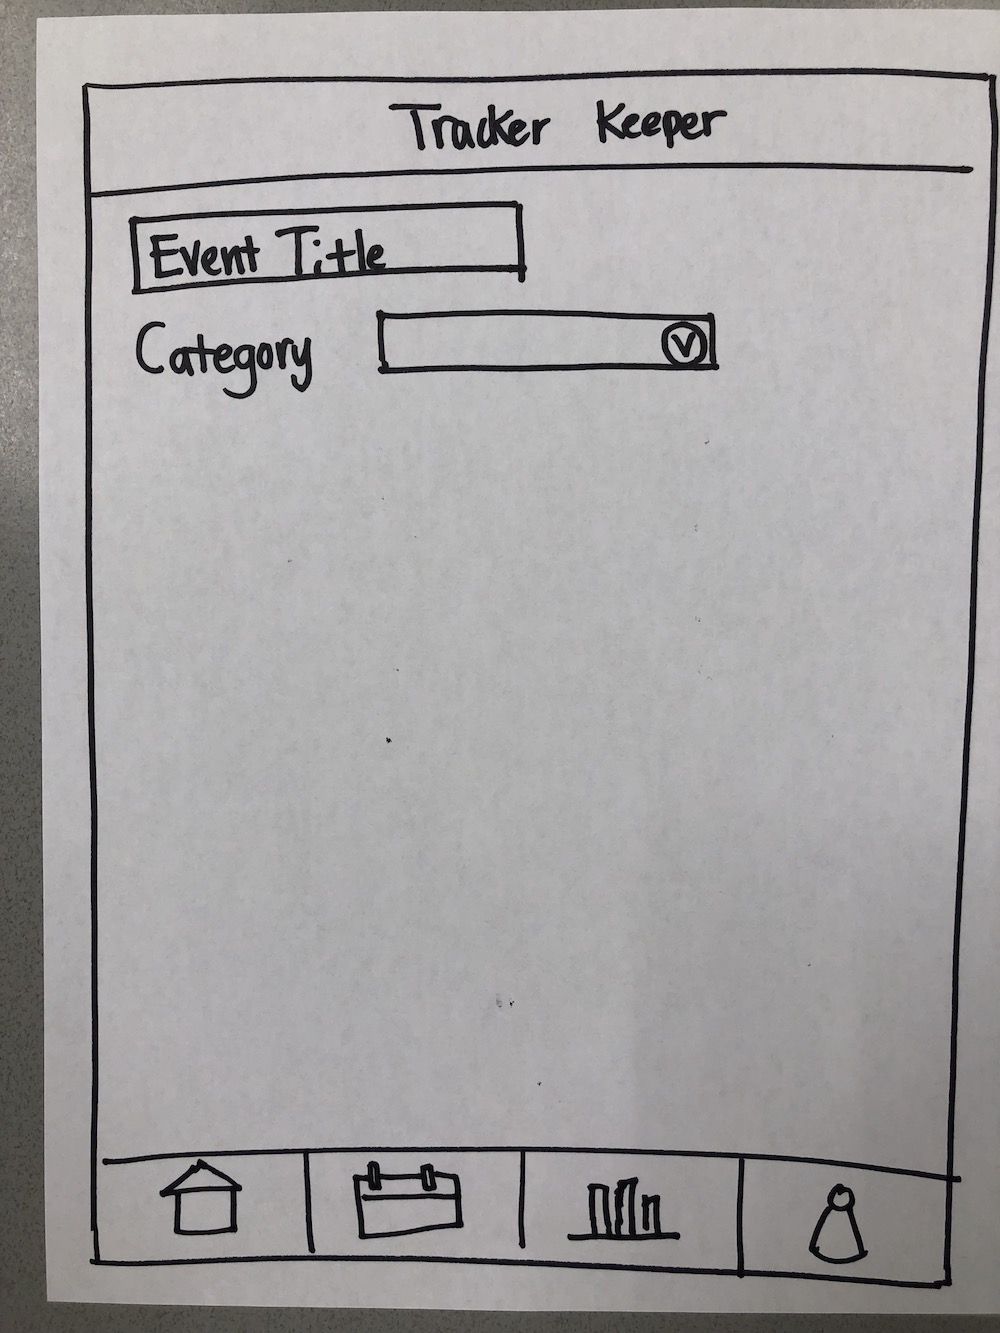 Tracker Keeper
Event Title
Category